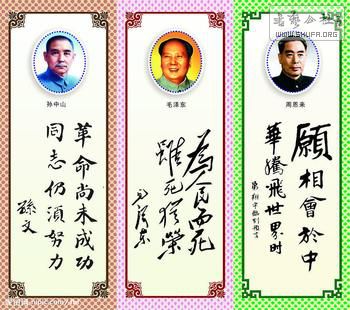 孙中山
革命尚未成功
同志仍須努力
孫文
毛泽东
為人民而死
雖死猶榮
毛澤東
周恩来
願相會於中
華騰飛世界時
WWW.SHUFA.ORG